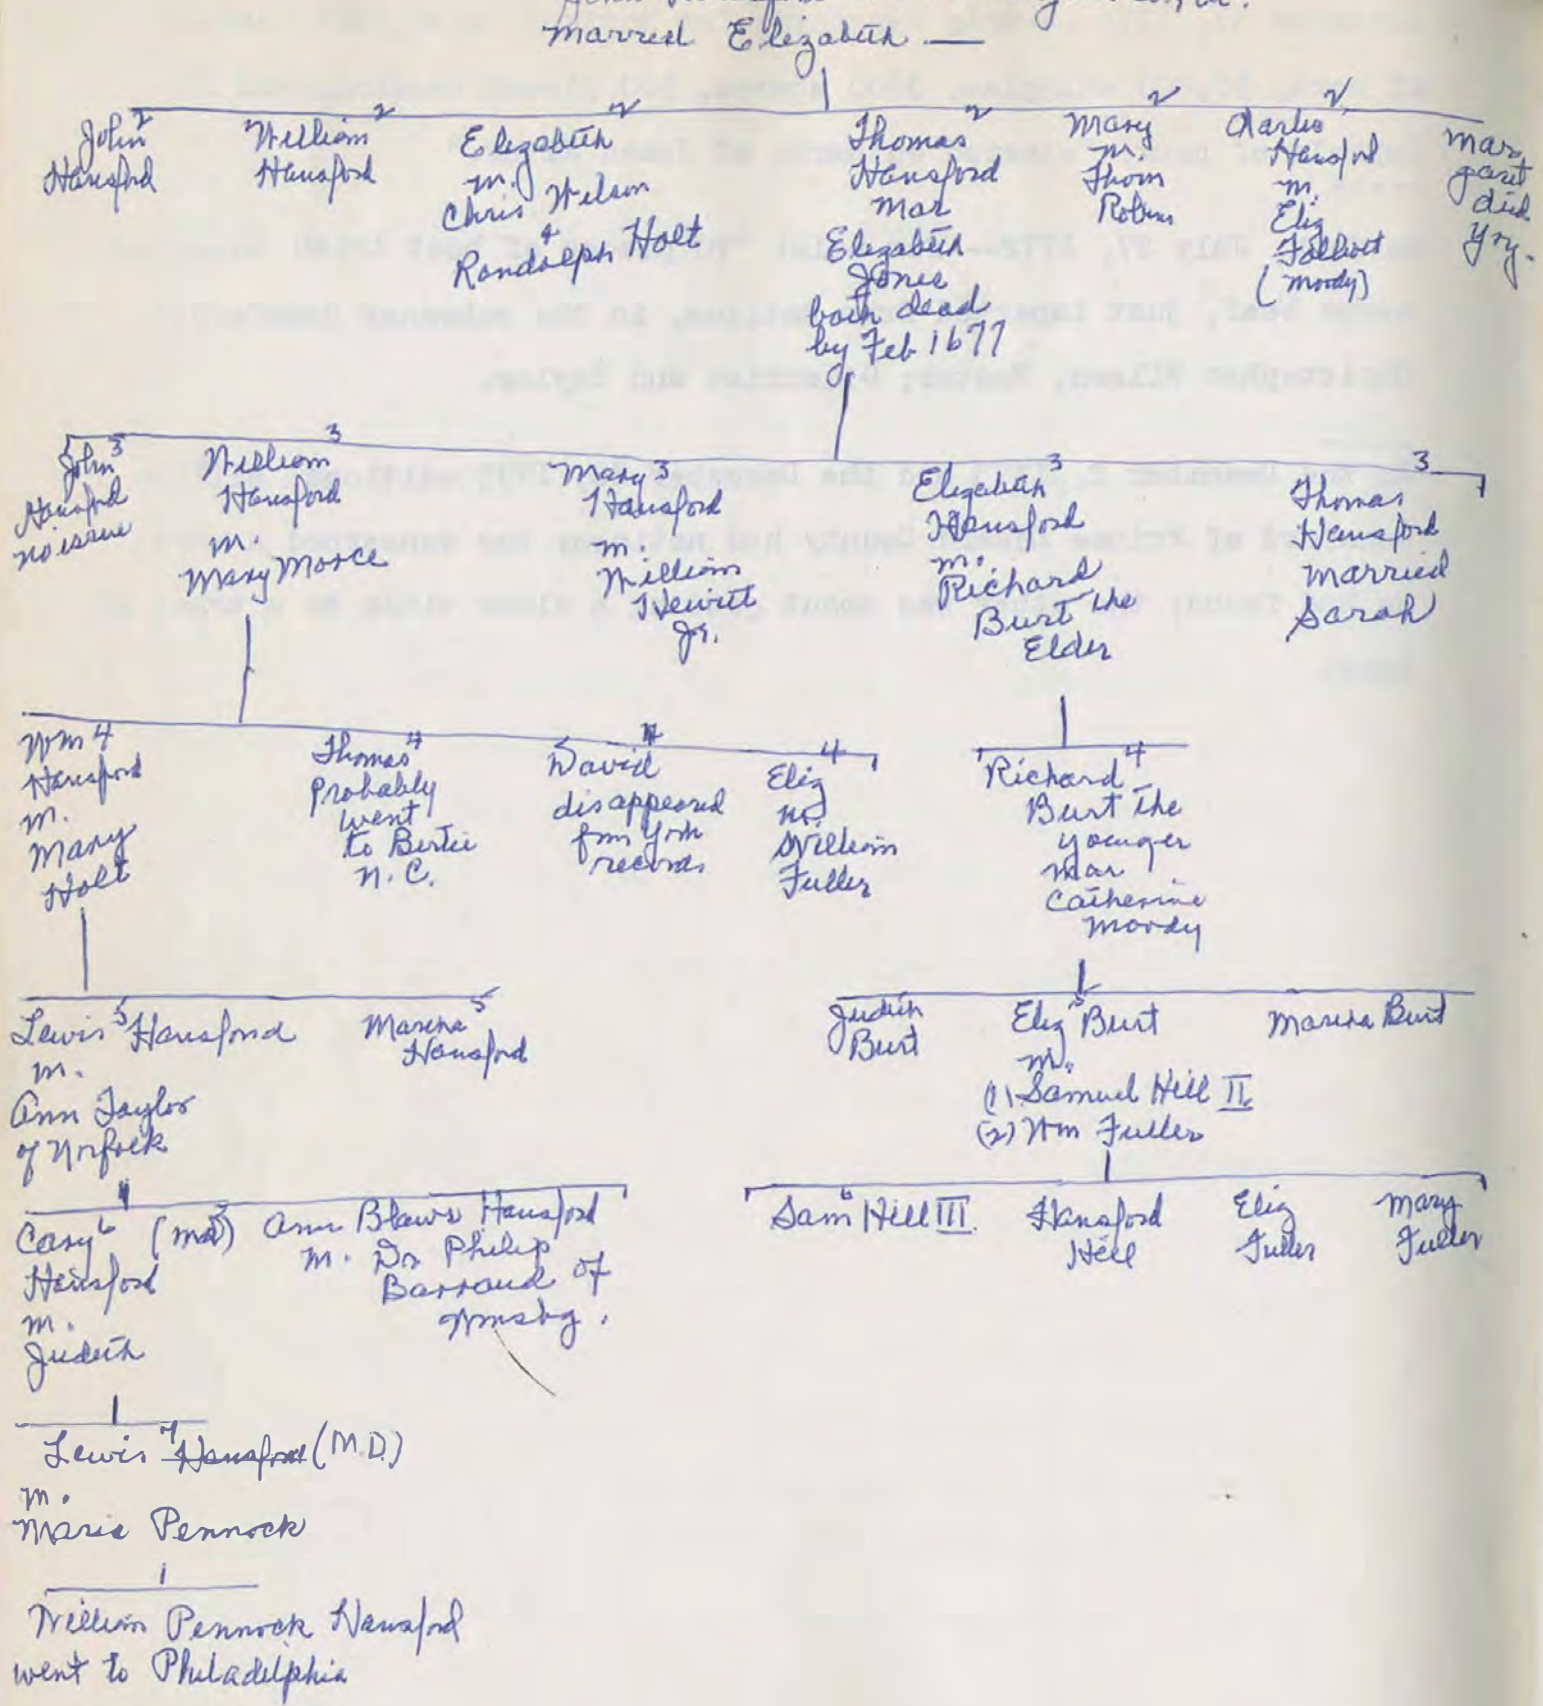 John
Married Elizabeth —
John 2
Hansford
William 2
Hansford
Elizabeth 2
m.
Chris Wilson
&
Randolph Holt
Thomas 2
Hansford
mar
Elizabeth
Jones
both dead
by Feb 1677
Mary 2
m.
Thom
Robins
Charles 2
Hansford
m.
Eliz
Folliott
(Moody)
Mar
garet
died
yng.
John 3
Hansford
no issue
William 3
Hansford
m.
Mary Morce
Mary 3
Hansford
m.
William
Hewitt
Jr.
Elizabeth 3
Hansford
m.
Richard
Burt the
Elder
Thomas 3
Hansford
married
Sarah
Wm 4
Hansford
m.
Mary
Holt
Thomas 4
Probably
went
to Bertie
N.C.
David 4
disappeared
fm York
records
Eliz 4
m.
William
Fuller
Richard 4
Burt the
younger
mar
Catherine
Moody
Lewis 5 Hansford
m.
Ann Taylor
of Norfolk
Martha 5
Hansford
Judith
Burt
Eliz 5 Burt
m.
(1) Samuel Hill II
(2) Wm Fuller
Martha Burt
Cary 6 (MD)
Hansford
m.
Judith
Ann Blaws Hansford
m. Dr Philip
Barraud of
Wmsbg.
Sam 6 Hill III.
Hansford
Hill
Eliz
Fuller
Mary
Fuller
Lewis 7 Hansford (M.D.)
m.
Maria Pennock
William Pennock Hansford
went to Philadelphia